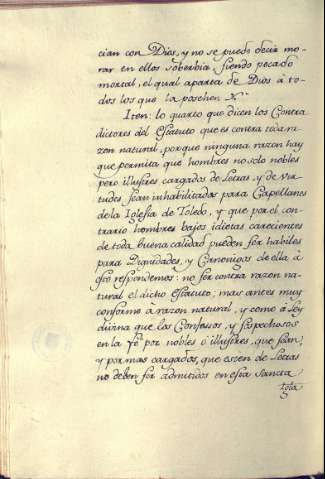 cian con Dios, y no se puede decir mo-
rar en ellos soberbia, siendo pecado
mortal, el qual aparta de Dios à to-
dos los que la posehen
Iten: lo quarto que dicen los Contra
dictores del Estatuto que es contra toda ra-
zon natural, porque ninguna razon hay
que permita que hombres no solo nobles
pero illustres cargados de Letras, y de vir-
tudes, sean inhabilitados para Capellanes
de la Iglesia de Toledo, y que por el con-
trario hombres bajos idiotas carecientes
de toda buena calidad pueden ser habiles
para Dignidades, y Canonigos de ella à
esto respondemos: no ser contra razon na-
tural el dicho Estatuto; mas antes muy
conforme a razon natural, y como à Ley
divina que los Confesos, y sospechosos
en la fe por nobles ò illustres, que sean
y por mas cargados, que esten de Letras
no deben ser admitidos en esta Santa
Igla